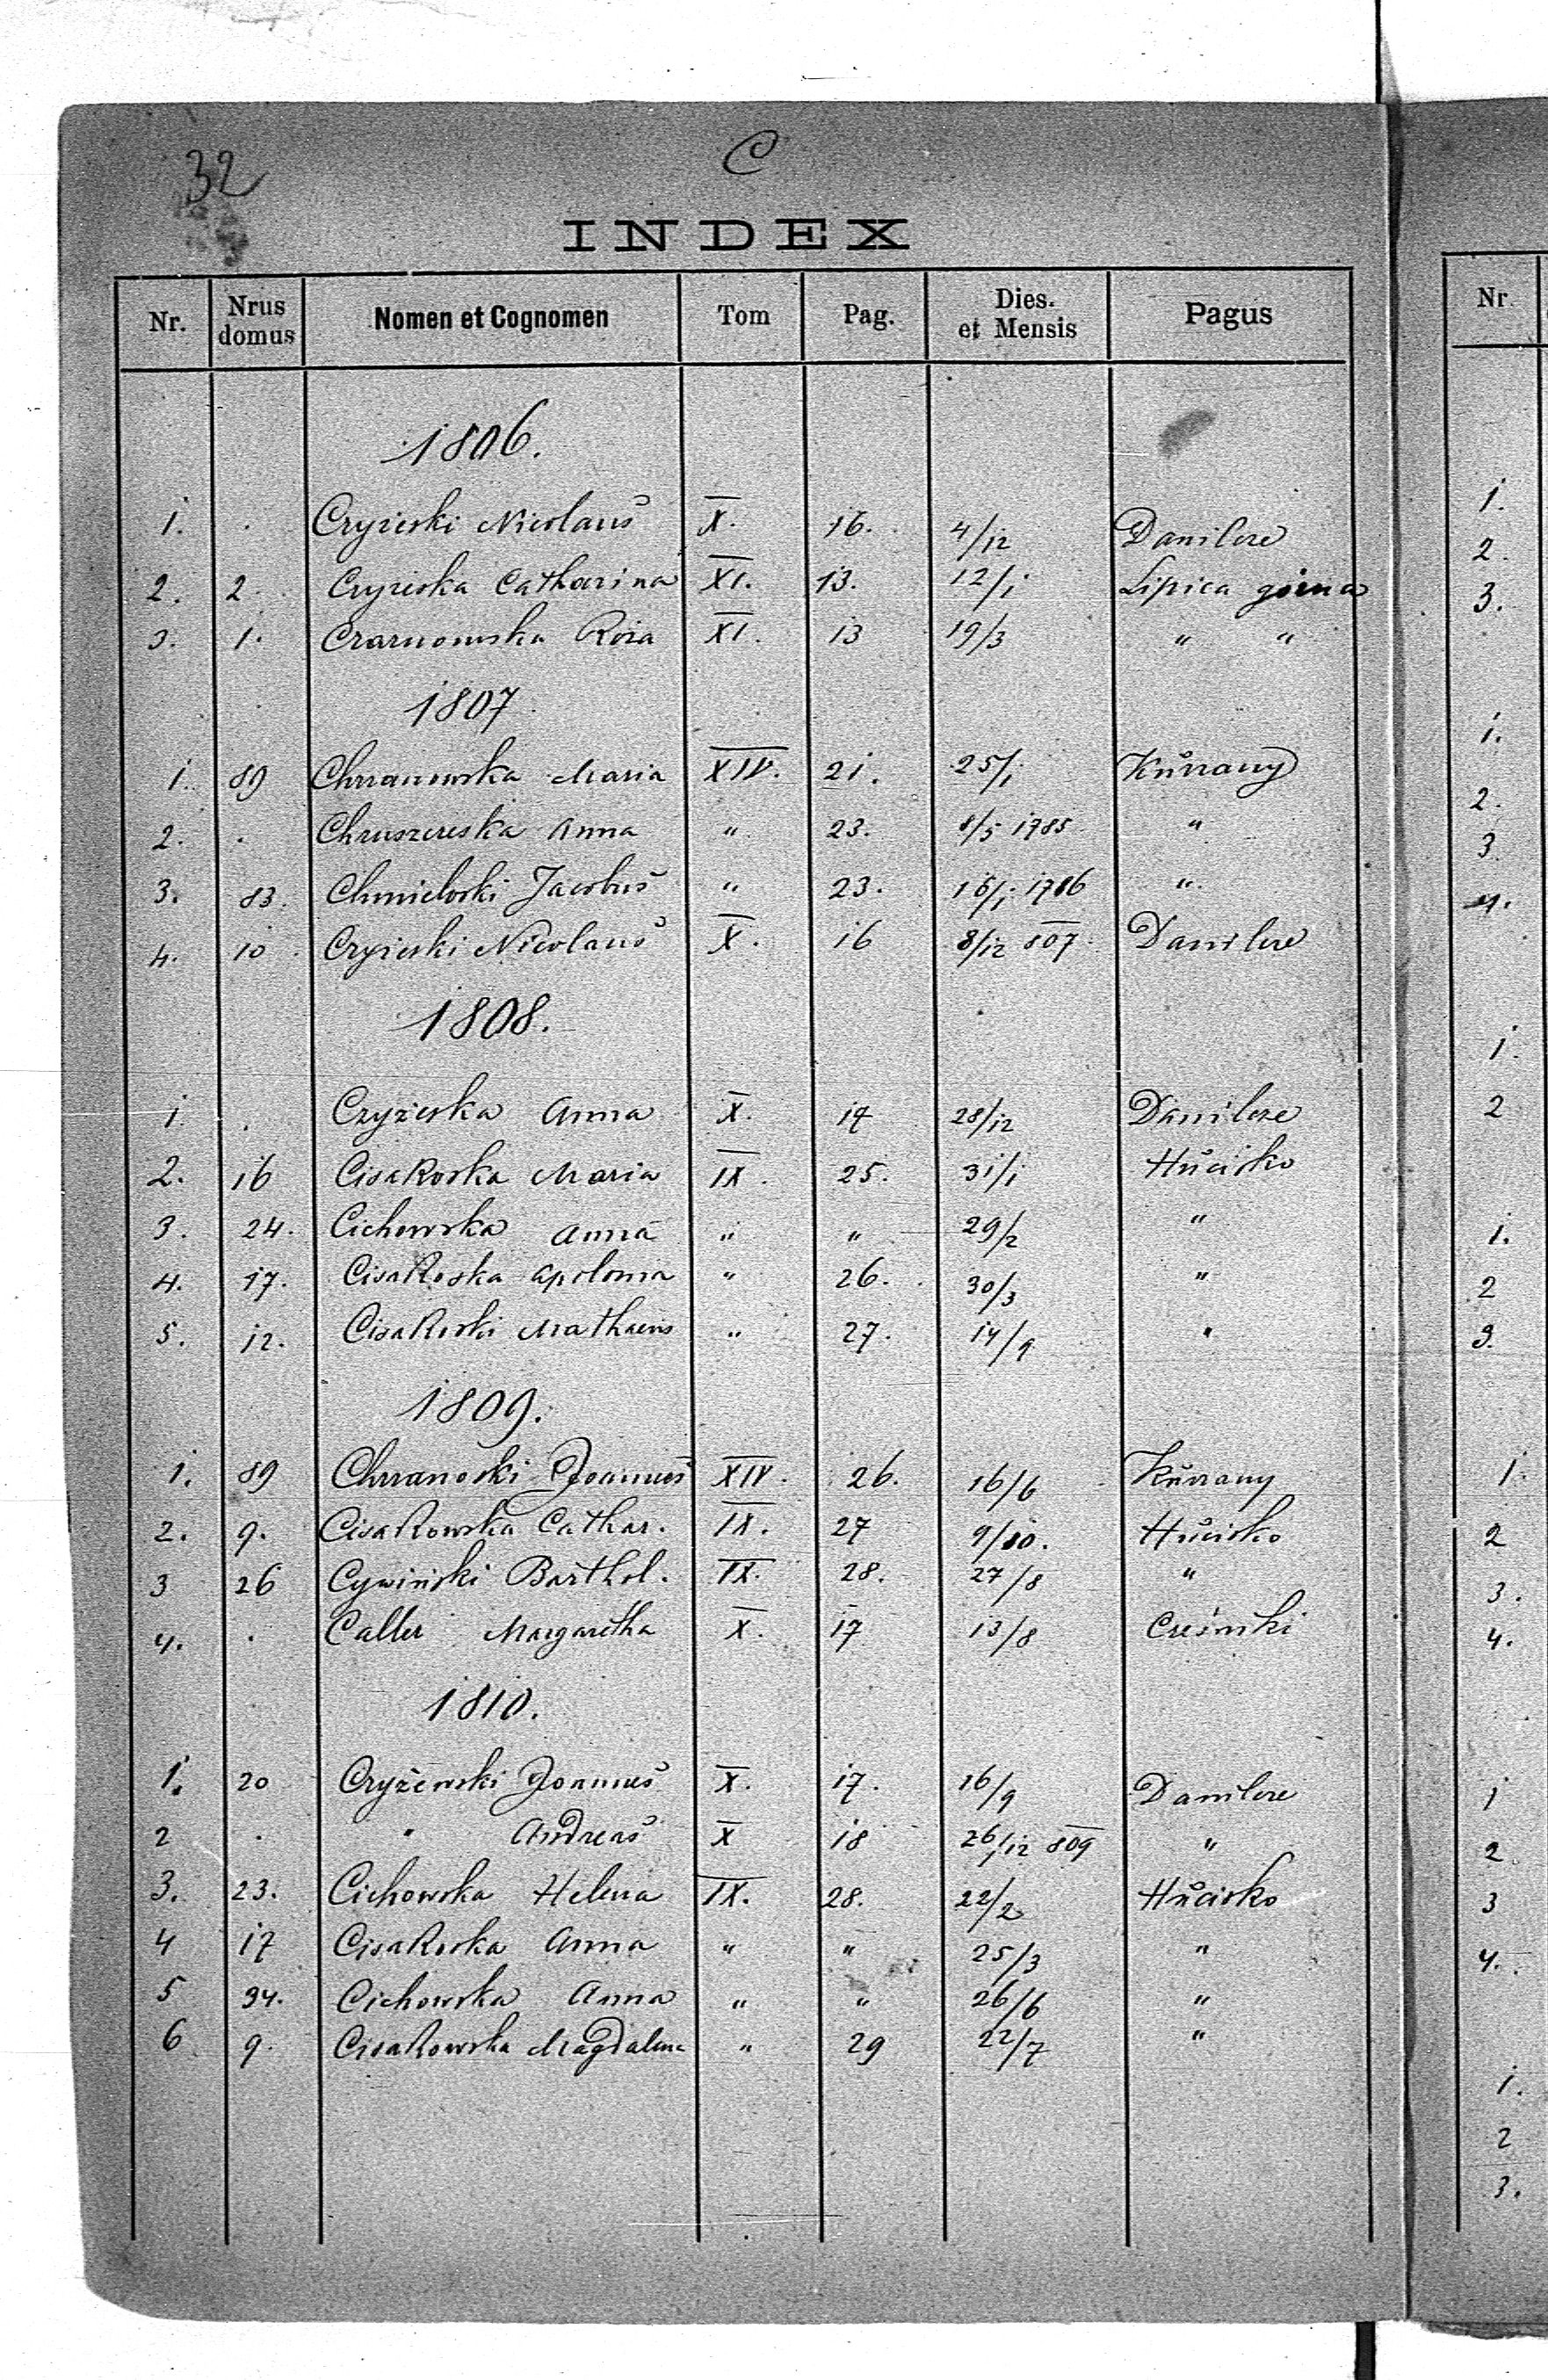 32
C
INDEX
Nr. Nrus domus Nomen et Cognomen Tom Pag. Dies. et Mensis Pagus
1806.
1. . Czyżeski Nicolaus X. 16. 4/12 Danilcze
2. 2. Czyżeska Catharina XI. 13. 12/1 Lipica górna
3. 1. Czarnowska Roża XI. 13 19/3 " "
1807
1. 89 Chrzanowska Maria XIV. 21. 25/1 Kurzany
2. . Chruszczeska Anna " 23. 8/5 1785 "
3. 83. Chmieloski Jacobus " 23. 16/1 1786 "
4. 10. Czyżeski Nicolaus X. 16 8/12 807. Danilcze
1808.
1 . Czyżeska Anna X. 17 28/12 Danilcze
2. 16 Cisakoska Maria IX. 25. 31/1 Hucisko
3. 24. Cichowska Anna " " 29/2 "
4. 17. Cisakoska Apolonia " 26. 30/3 "
5. 12. Cisakoski Mathaeus " 27. 14/9 "
1809.
1. 89 Chrzanoski Joannes XIV. 26. 16/6 Kurzany
2. 9. Cisakowska Cathar. IX. 27 9/10. Hucisko
3 26 Cywiński Barthol. IX. 28. 27/8 "
4. . Caller Margaretha X. 17 13/8
1810.
1. 20 Czyżewski Joannes X. 17. 16/9 Danilcze
2 . " Andreas X 18 26/12 809 "
3. 23. Cichowska Helena IX. 28. 22/2 Hucisko
4 17 Cisakoska Anna " " 25/3 "
5 34. Cichowska Anna " " 26/6 "
6 9. Cisakowska Magdalena " 29 22/7 "
Nr
1.
2.
3.
1.
2.
3.
4.
1.
2
1.
2
3.
1.
2
3.
4.
1
2
3
4.
1.
2
3.